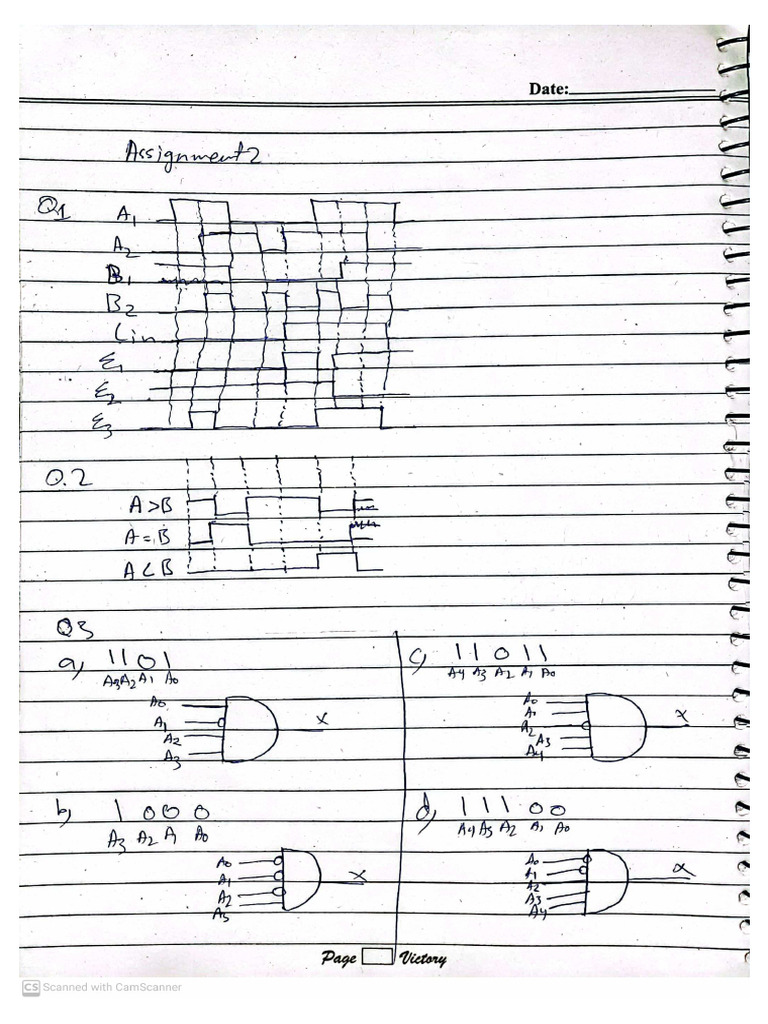 Date:
Assignment 2
Q1
A1
A2
B1
B2
Cin
Σ1
Σ2
Σ3
Q.2
A>B
A=B
A<B
Q3
a) 1101
A3 A2 A1 A0
A0
A1
A2
A3
X
c) 11011
A4 A3 A2 A1 A0
A0
A1
A2
A3
A4
X
b) 1000
A3 A2 A1 A0
A0
A1
A2
A3
X
d) 11100
A4 A3 A2 A1 A0
A0
A1
A2
A3
A4
X
Page Victory
CS Scanned with CamScanner